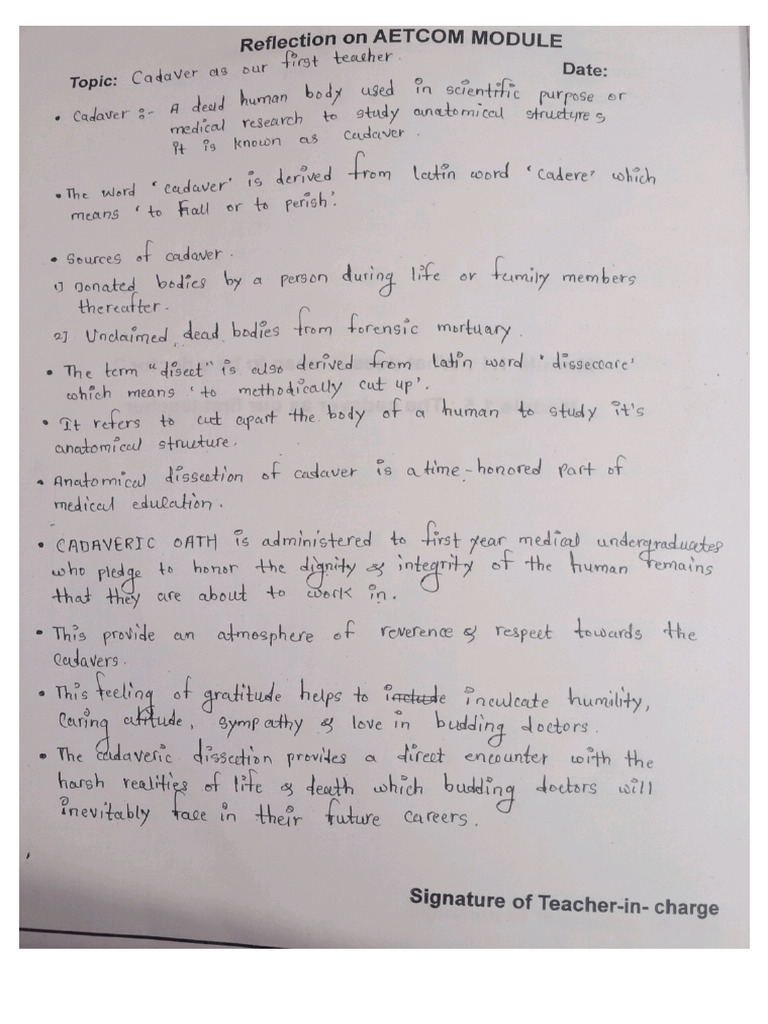 Reflection on AETCOM MODULE
Topic: Cadaver as our first teacher.
Date:
• Cadaver :- A dead human body used in scientific purpose or
medical research to study anatomical structures
it is known as cadaver.
• The word 'cadaver' is derived from latin word 'cadere' which
means 'to fall or to perish'.
• Sources of cadaver.
1) Donated bodies by a person during life or family members
thereafter.
2] Unclaimed dead bodies from forensic mortuary.
• The term "disect" is also derived from Latin word 'disseccare'
which means 'to methodically cut up'.
• It refers to cut apart the body of a human to study it's
anatomical structure.
• Anatomical dissection of cadaver is a time-honored part of
medical education.
• CADAVERIC OATH is administered to first year medical undergraduates
who pledge to honor the dignity & integrity of the human remains
that they are about to work in.
• This provide an atmosphere of reverence & respect towards the
cadavers.
• This feeling of gratitude helps to include inculcate humility,
caring attitude, sympathy & love in budding doctors.
• The cadaveric dissection provides a direct encounter with the
harsh realities of life & death which budding doctors will
inevitably face in their future careers.
Signature of Teacher-in- charge